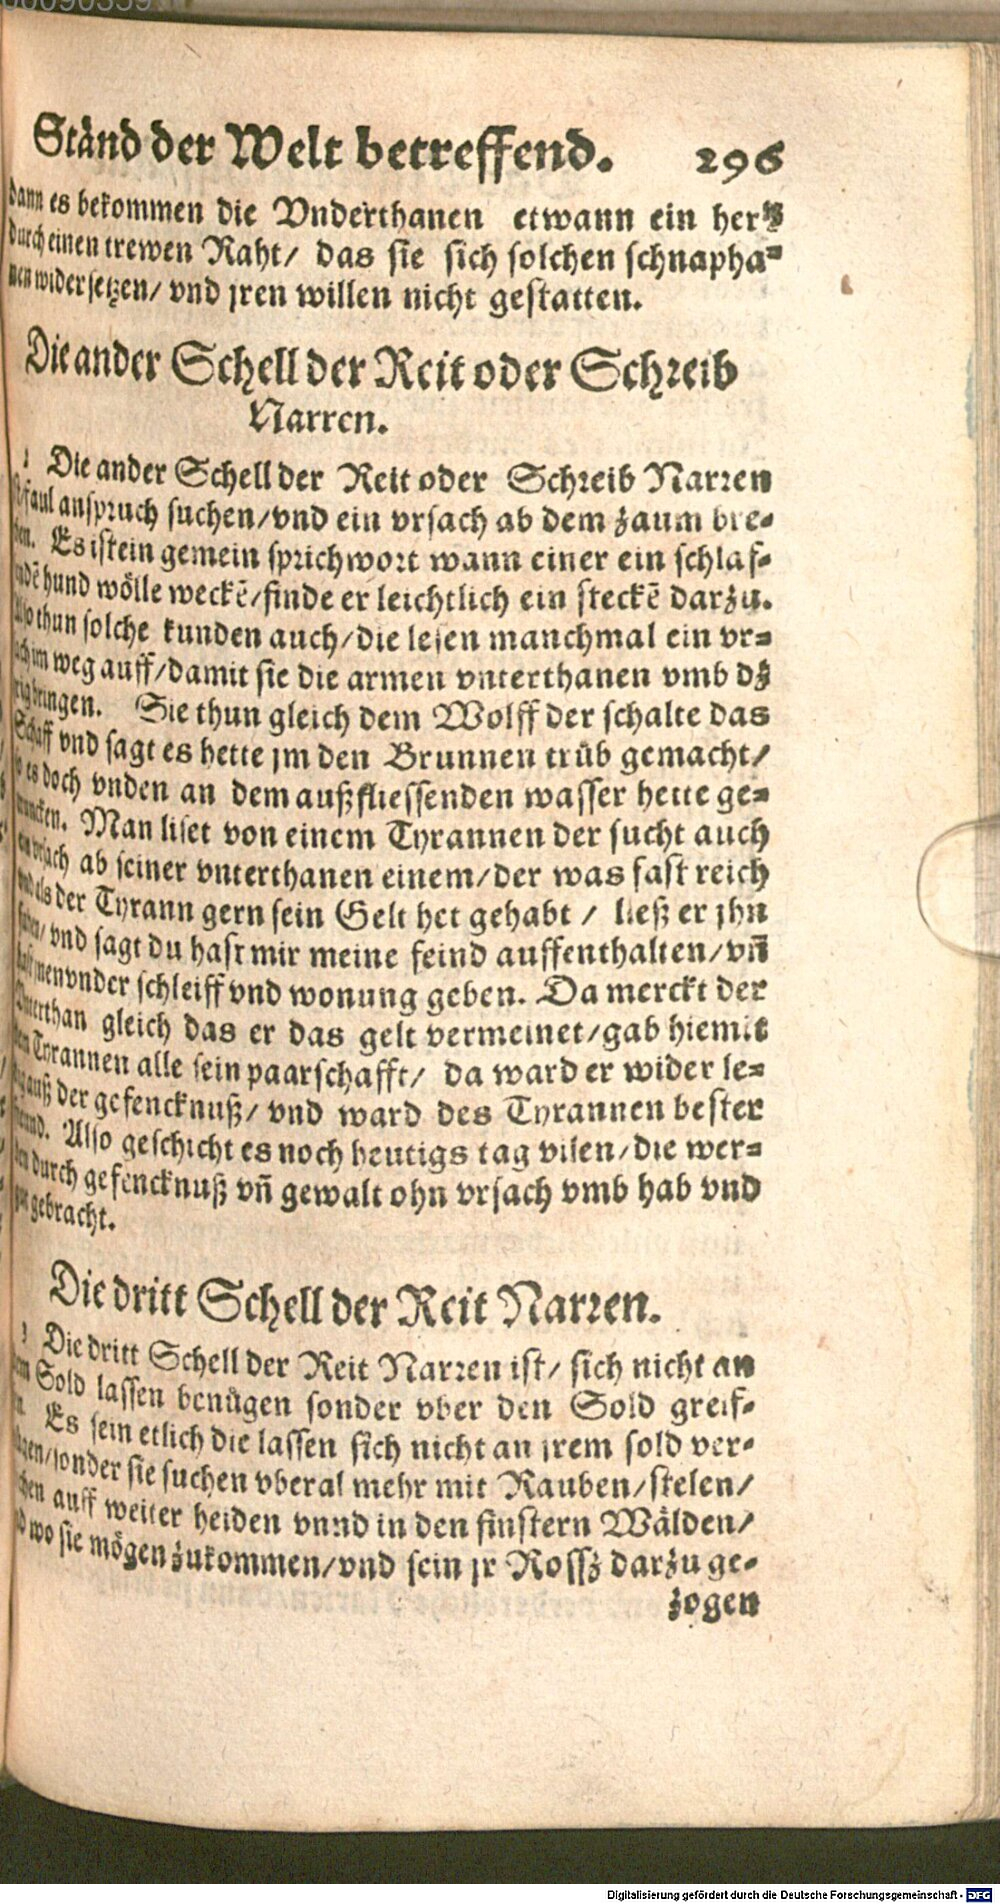 00090359
Ständ der Welt betreffend. 296
dann es bekommen die Vnderthanen etwann ein hertz
durch einen trewen Raht/ das sie sich solchen schnapha-
nen widersetzen/ vnd jren willen nicht gestatten.
Die ander Schell der Reit oder Schreib
Narren.
Die ander Schell der Reit oder Schreib Narren
ist faul anspruch suchen/vnd ein vrsach ab dem zaum bre-
chen. Es ist ein gemein sprichwort wann einer ein schlaf-
endē hund wölle weckē/finde er leichtlich ein steckē darzu.
Also thun solche kunden auch/die lesen manchmal ein vr-
sach im weg auff/damit sie die armen vnterthanen vmb dz
jrig bringen. Sie thun gleich dem Wolff der schalte das
Schaff vnd sagt es hette jm den Brunnen trüb gemacht/
so es doch vnden an dem außfliessenden wasser hette ge-
truncken. Man liset von einem Tyrannen der sucht auch
ein vrsach ab seiner vnterthanen einem/der was fast reich
vnd als der Tyrann gern sein Gelt het gehabt / ließ er jhn
/vnd sagt du hast mir meine feind auffenthalten/vñ
hast jnen vnder schleiff vnd wonung geben. Da merckt der
Vnterthan gleich das er das gelt vermeinet/gab hiemit
dem Tyrannen alle sein paarschafft/ da ward er wider le-
dig auß der gefencknuß/ vnd ward des Tyrannen bester
freund. Also geschicht es noch heutigs tag vilen/die wer-
den durch gefencknuß vñ gewalt ohn vrsach vmb hab vnd
gut gebracht.
Die dritt Schell der Reit Narren.
Die dritt Schell der Reit Narren ist/ sich nicht an
dem Sold lassen benügen sonder vber den Sold greif-
en. Es sein etlich die lassen sich nicht an jrem sold ver-
nügen/sonder sie suchen vberal mehr mit Rauben/stelen/
auff weiter heiden vnnd in den finstern Wälden/
vnd wo sie mögen zukommen/vnd sein jr Rossz darzu ge-
zogen
Digitalisierung gefördert durch die Deutsche Forschungsgemeinschaft - DFG